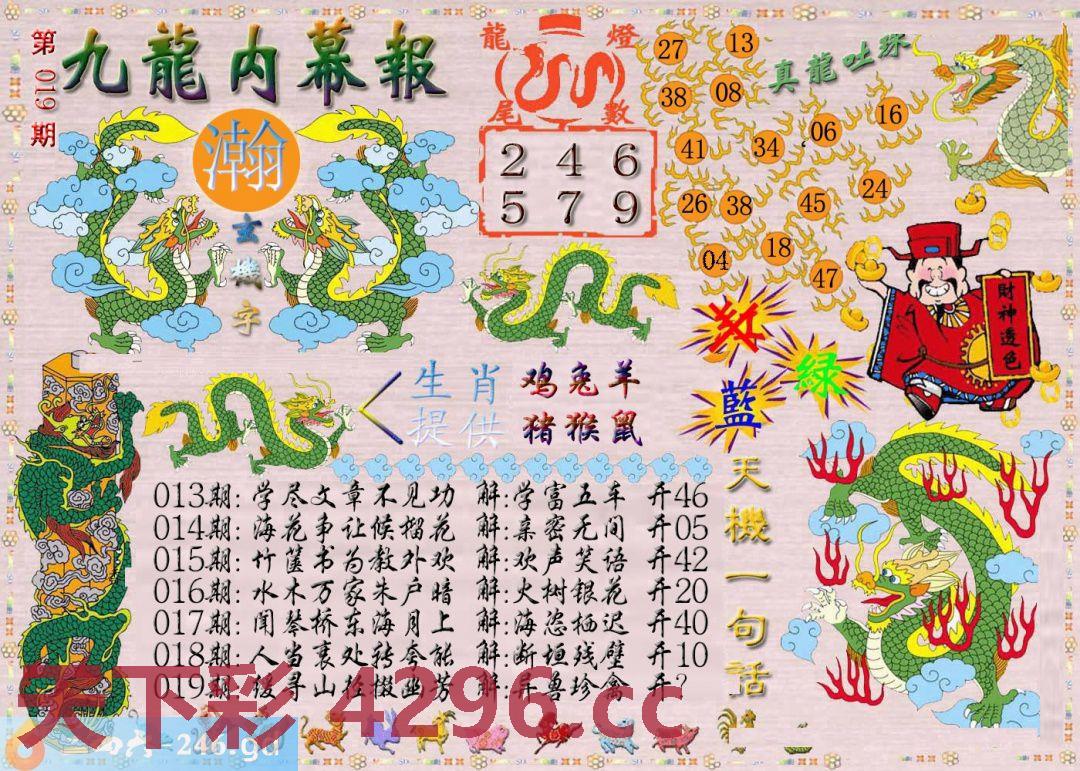 第019期
九龍内幕報
瀚
玄機字
龍燈
尾數
2 4 6
5 7 9
真龍吐珠
27 13
38 08
41 34 06 16
26 38 45 24
04 18 47
红
綠
藍
財神透色
生肖 鸡兔羊
提供 猪猴鼠
天機一句話
013期:学尽文章不见功 解:学富五车 开46
014期:海花争让候榴花 解:亲密无间 开05
015期:竹箧书为教外欢 解:欢声笑语 开42
016期:水木万家朱户暗 解:火树银花 开20
017期:闻琴桥东海月上 解:海恣栖迟 开40
018期:人当衰处转夸能 解:断垣残壁 开10
019期: 寻山径掇幽芳 解:异兽珍禽 开?
天下彩 4296.cc
=246.gd